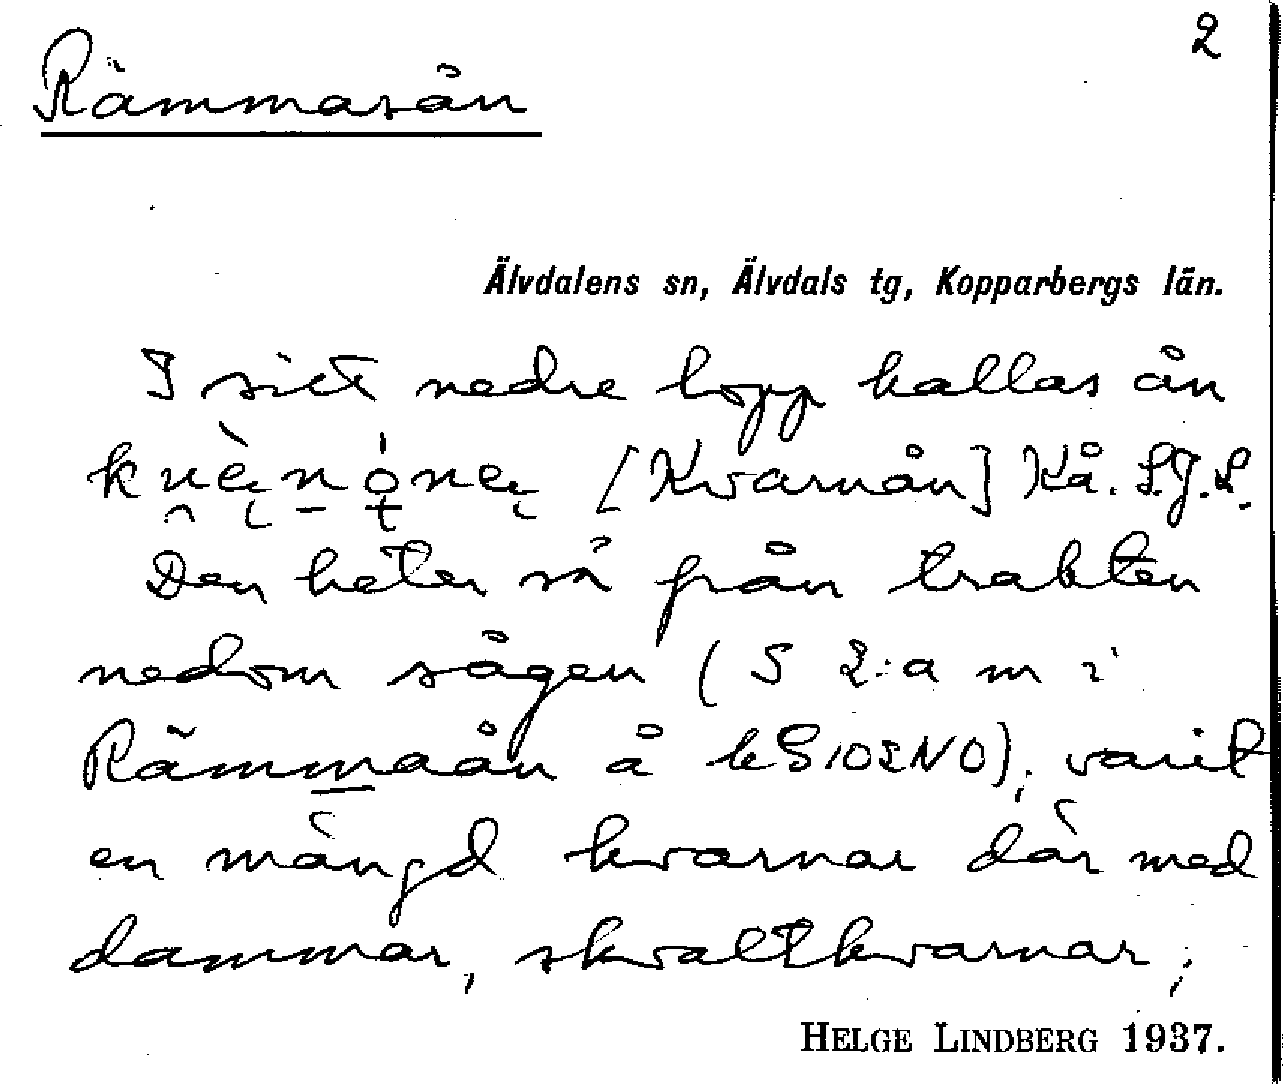 2
Rämmasån
Älvdalens sn, Älvdals tg, Kopparbergs län.
I sitt nedre lopp kallas ån
[Kvarnån] Kå. S.J.S.
Den heter så från trakten
nedom sågen (S 2:a m i
Rämmaån å bS10ENO), varit
en mängd kvarnar där med
dammar, skvaltkvarnar;
HELGE LINDBERG 1937.